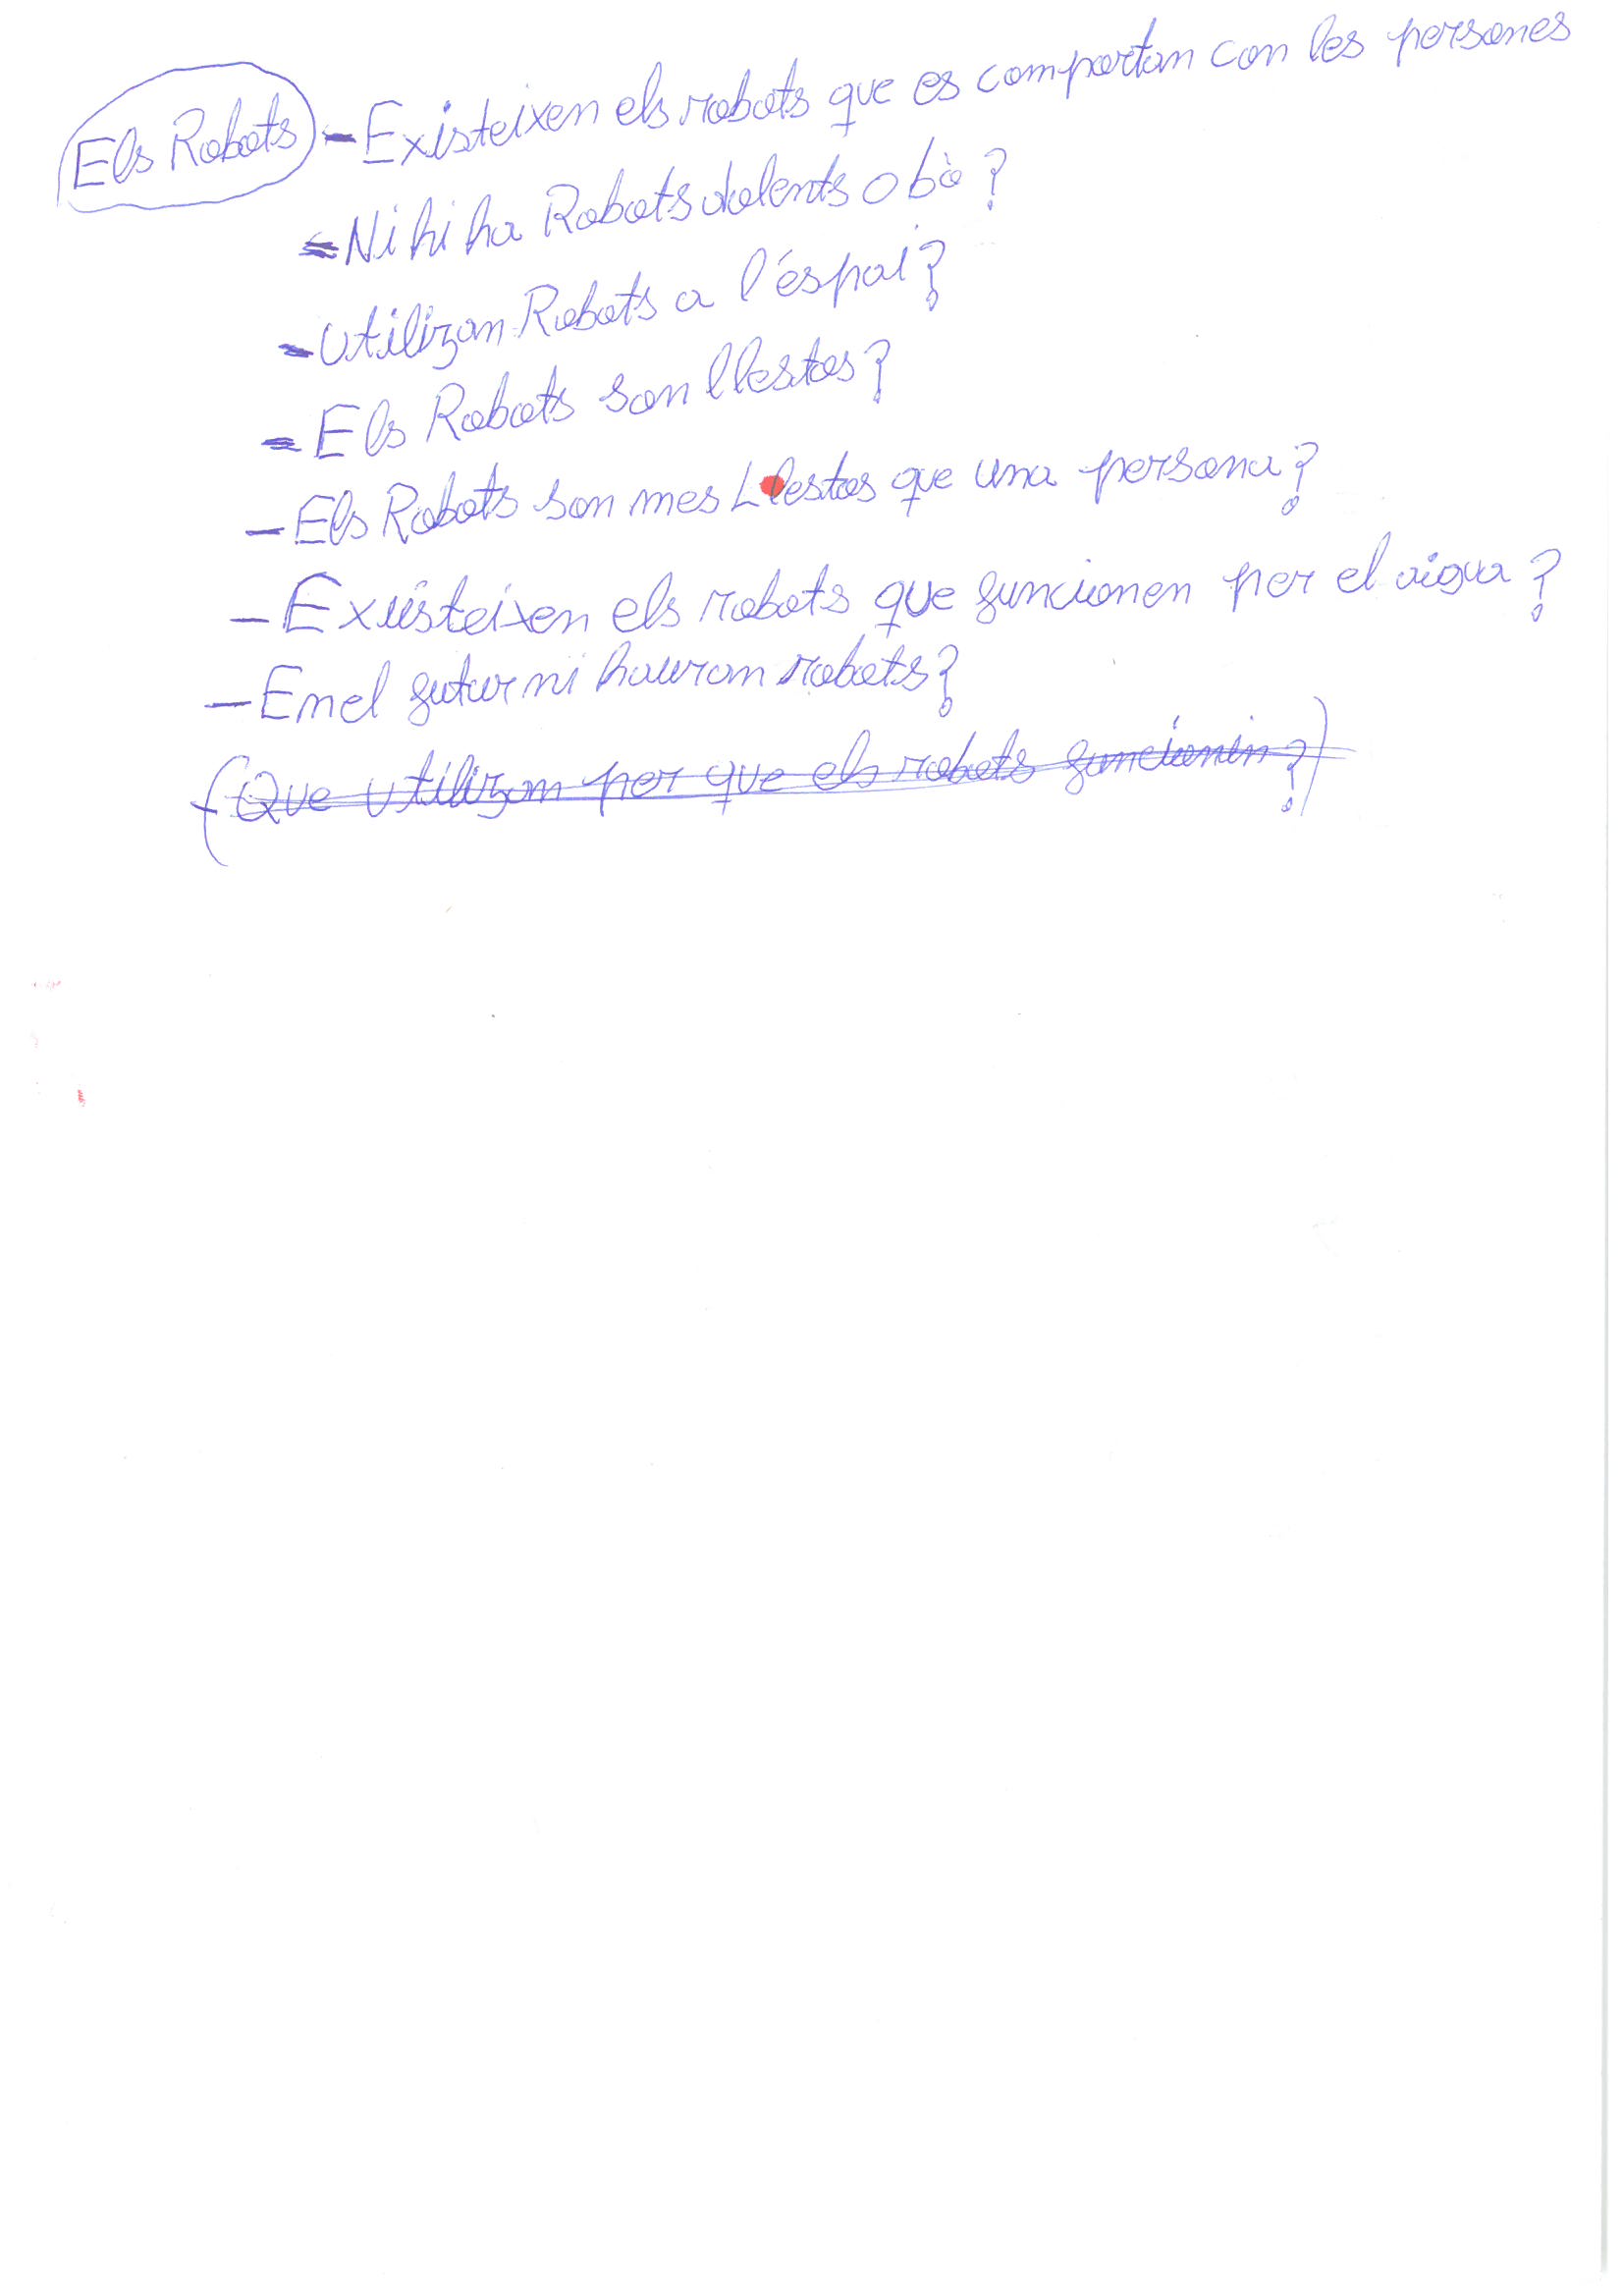 Els Robots - Existeixen els robots que es comportan con les persones
- Ni hi ha Robots dolents o bò?
- Utilizan Robots a l'éspai?
- Els Robots son llestos?
- Els Robots son mes Llestos que una persona?
- Existeixen els robots que funcionen per el aigua?
- En el futur ni hauran robots?
(Que utilizam per que els robots funcionin?)